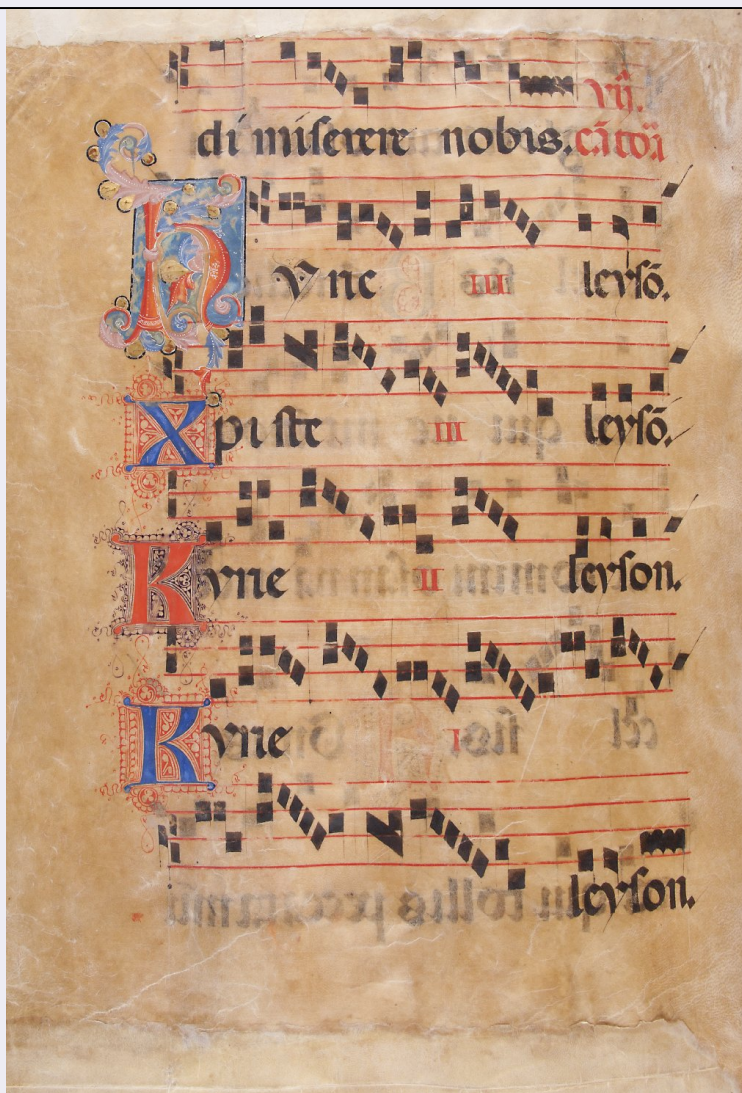 di miserere nobis.
kyrie III leysō.
xpiste III leysō.
kyrie II leyson.
kyrie I
leyson.